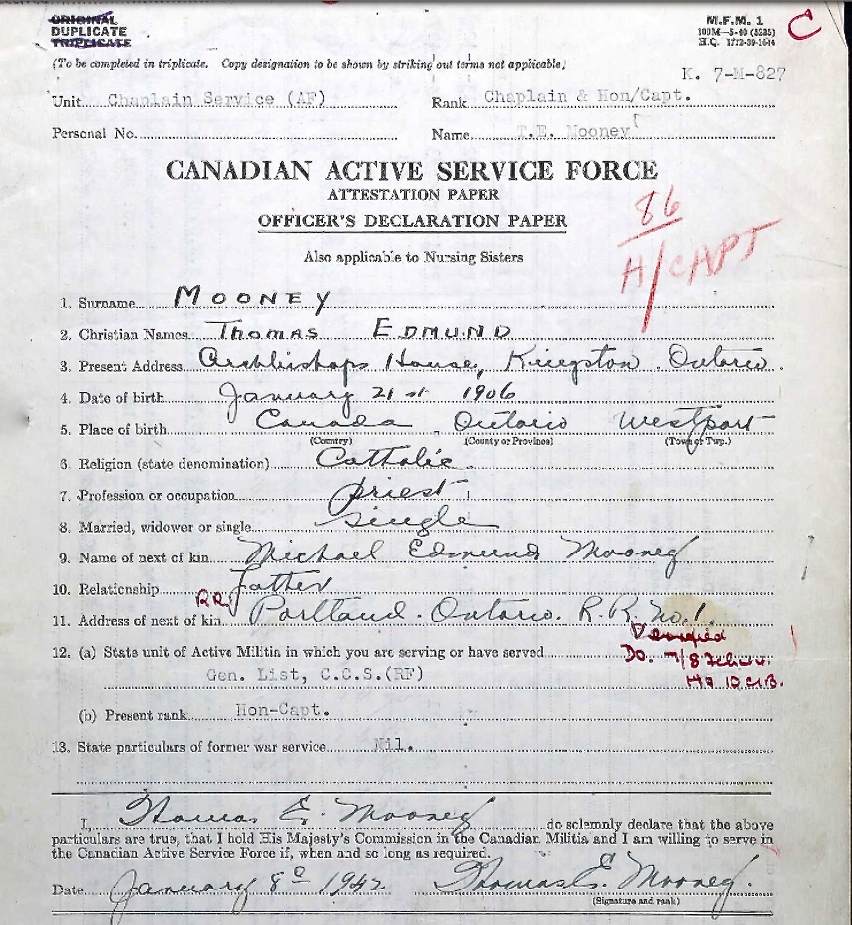 ORIGINAL
DUPLICATE
TRIPLICATE
M.F.M. 1
100M—5-40 (5535)
H.Q. 1772-39-1614
C
(To be completed in triplicate. Copy designation to be shown by striking out terms not applicable)
K. 7-M-827
Unit Chaplain Service (AF) Rank Chaplain & Hon/Capt.
Personal No. Name T.E. Mooney
CANADIAN ACTIVE SERVICE FORCE
ATTESTATION PAPER
OFFICER'S DECLARATION PAPER
Also applicable to Nursing Sisters
86
A/CAPT
1. Surname MOONEY
2. Christian Names Thomas EDMUND
3. Present Address Archbishops House, Kingston. Ontario.
4. Date of birth January 21st 1906
5. Place of birth Canada Ontario Westport
(Country) (County or Province) (Town or Twp.)
6. Religion (state denomination) Catholic
7. Profession or occupation priest
8. Married, widower or single single
9. Name of next of kin Michael Edmund Mooney
10. Relationship father
RR
11. Address of next of kin Portland. Ontario. R.R. No. 1.
Verified
12. (a) State unit of Active Militia in which you are serving or have served Do.
Gen. List, C.C.S.(RF)
(b) Present rank Hon-Capt.
13. State particulars of former war service Nil.
I, Thomas E. Mooney do solemnly declare that the above
particulars are true, that I hold His Majesty's Commission in the Canadian Militia and I am willing to serve in
the Canadian Active Service Force if, when and so long as required.
Date January 8th 1942 Thomas E. Mooney.
(Signature and rank)